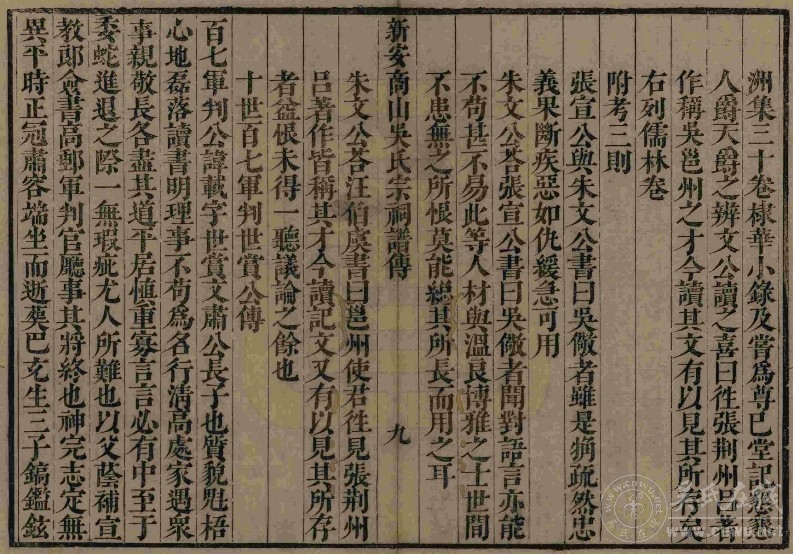 洲集三十卷棣華小錄及嘗為尊己堂記懇懇
人爵天爵之辨文公讀之喜曰徃張荆州吕著
作稱吴邕州之才今讀其文有以見其所存矣
右列儒林卷
附考三則
張宣公與朱文公書曰吴儆者雖是狥疏然忠
義果斷疾惡如仇緩急可用
朱文公荅張宣公書曰吴儆者聞對語言亦能
不苟甚不易此等人材與溫良博雅之士世間
不患無之所恨莫能總其所長而用之耳
新安商山吴氏宗祠譜傳
九
朱文公荅汪伯虞書曰邕州使君徃見張荆州
吕著作皆稱其才今讀記文又有以見其所存
者益恨未得一聽議論之餘也
十世百七軍判世賞公傳
百七軍判公諱載字世賞文肅公長子也質貌魁梧
心地磊落讀書明理事不苟為名行淸高處家遇衆
事親敬長各盡其道平居愼重寡言言必有中至于
委蛇進退之際一無瑕疵尤人所難也以父蔭補宣
教郎僉書高郵軍判官廳事其將終也神完志定無
異平時正冠肅容端坐而逝葬巴充生三子鎬鑑鉉